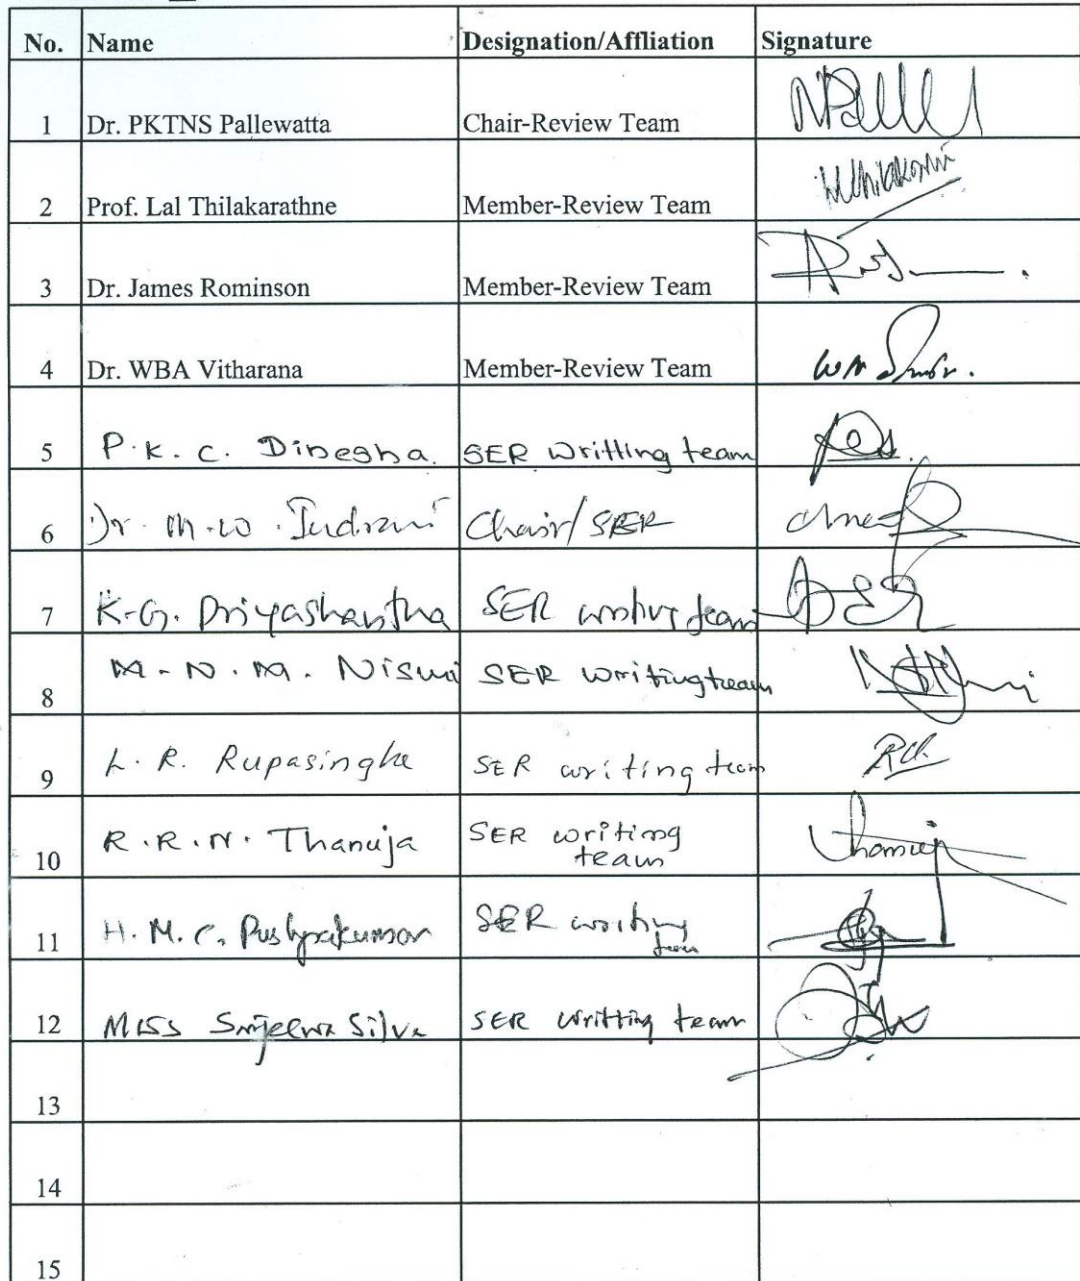 No. Name Designation/Affliation Signature
1 Dr. PKTNS Pallewatta Chair-Review Team
2 Prof. Lal Thilakarathne Member-Review Team
3 Dr. James Rominson Member-Review Team
4 Dr. WBA Vitharana Member-Review Team
5 P.K.C. Dinesha. SER Writting team
6 Dr. M.W. Indrani Chair/SER
7 K.G. Priyashantha SER writing team
8 M.N.M. Nismi SER writing team
9 L.R. Rupasinghe SER writing team
10 R.R.N. Thanuja SER writing
team
11 H.M.C. Pushpakumar SER writing
team
12 Miss Sanjeewa Silva SER writting team
13
14
15